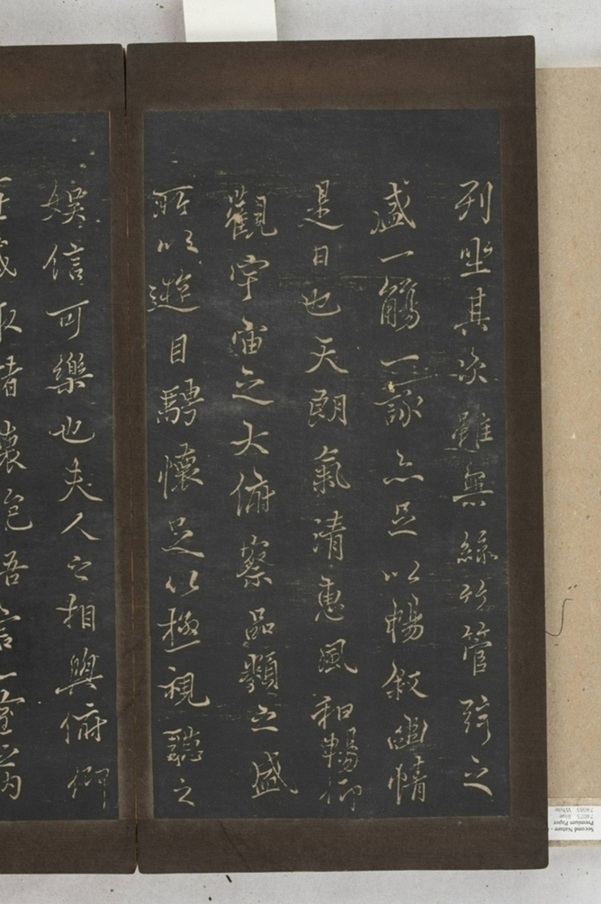 列坐其次雖無絲竹管弦之
盛一觴一詠亦足以暢敘幽情
是日也天朗氣清惠風和暢仰
觀宇宙之大俯察品類之盛
所以遊目騁懷足以極視聽之
娛信可樂也夫人之相與俯仰
取諸懷抱悟言一室之內
Second Nature -
Premium Paper